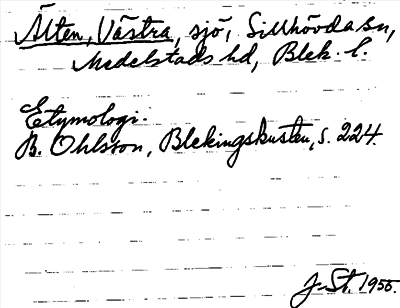 Älten, Västra, sjö, Sillhövda sn,
Medelstads hd, Blek. l.
Etymologi.
B. Ohlsson, Blekingskusten, s. 224.
J-St. 1955.